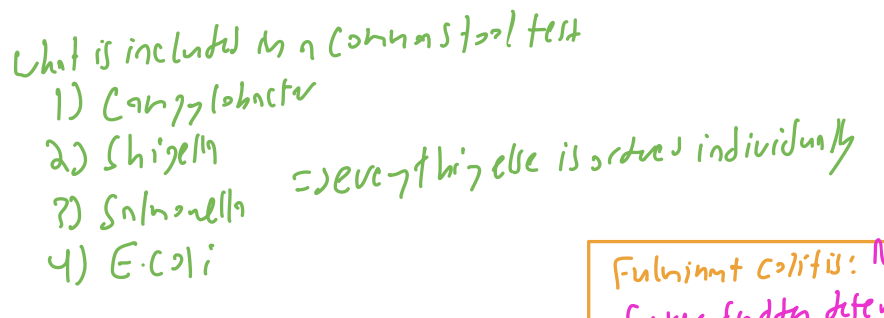 What is included in a common stool test
1) Campylobacter
2) Shigella
3) Salmonella
4) E.coli
=> everything else is ordered individually
Fulminant colitis: